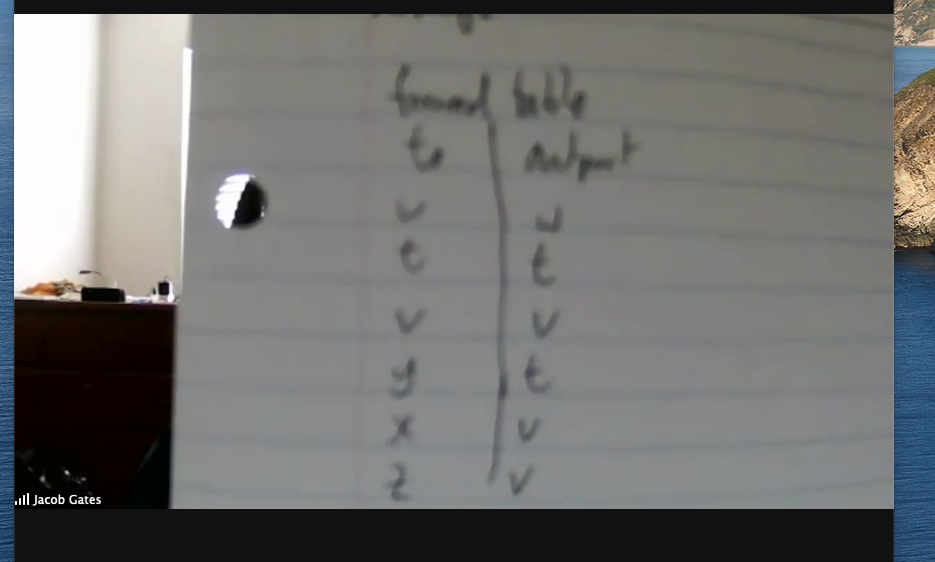 forward table
to output
u u
t t
v v
y t
x v
z v
Jacob Gates